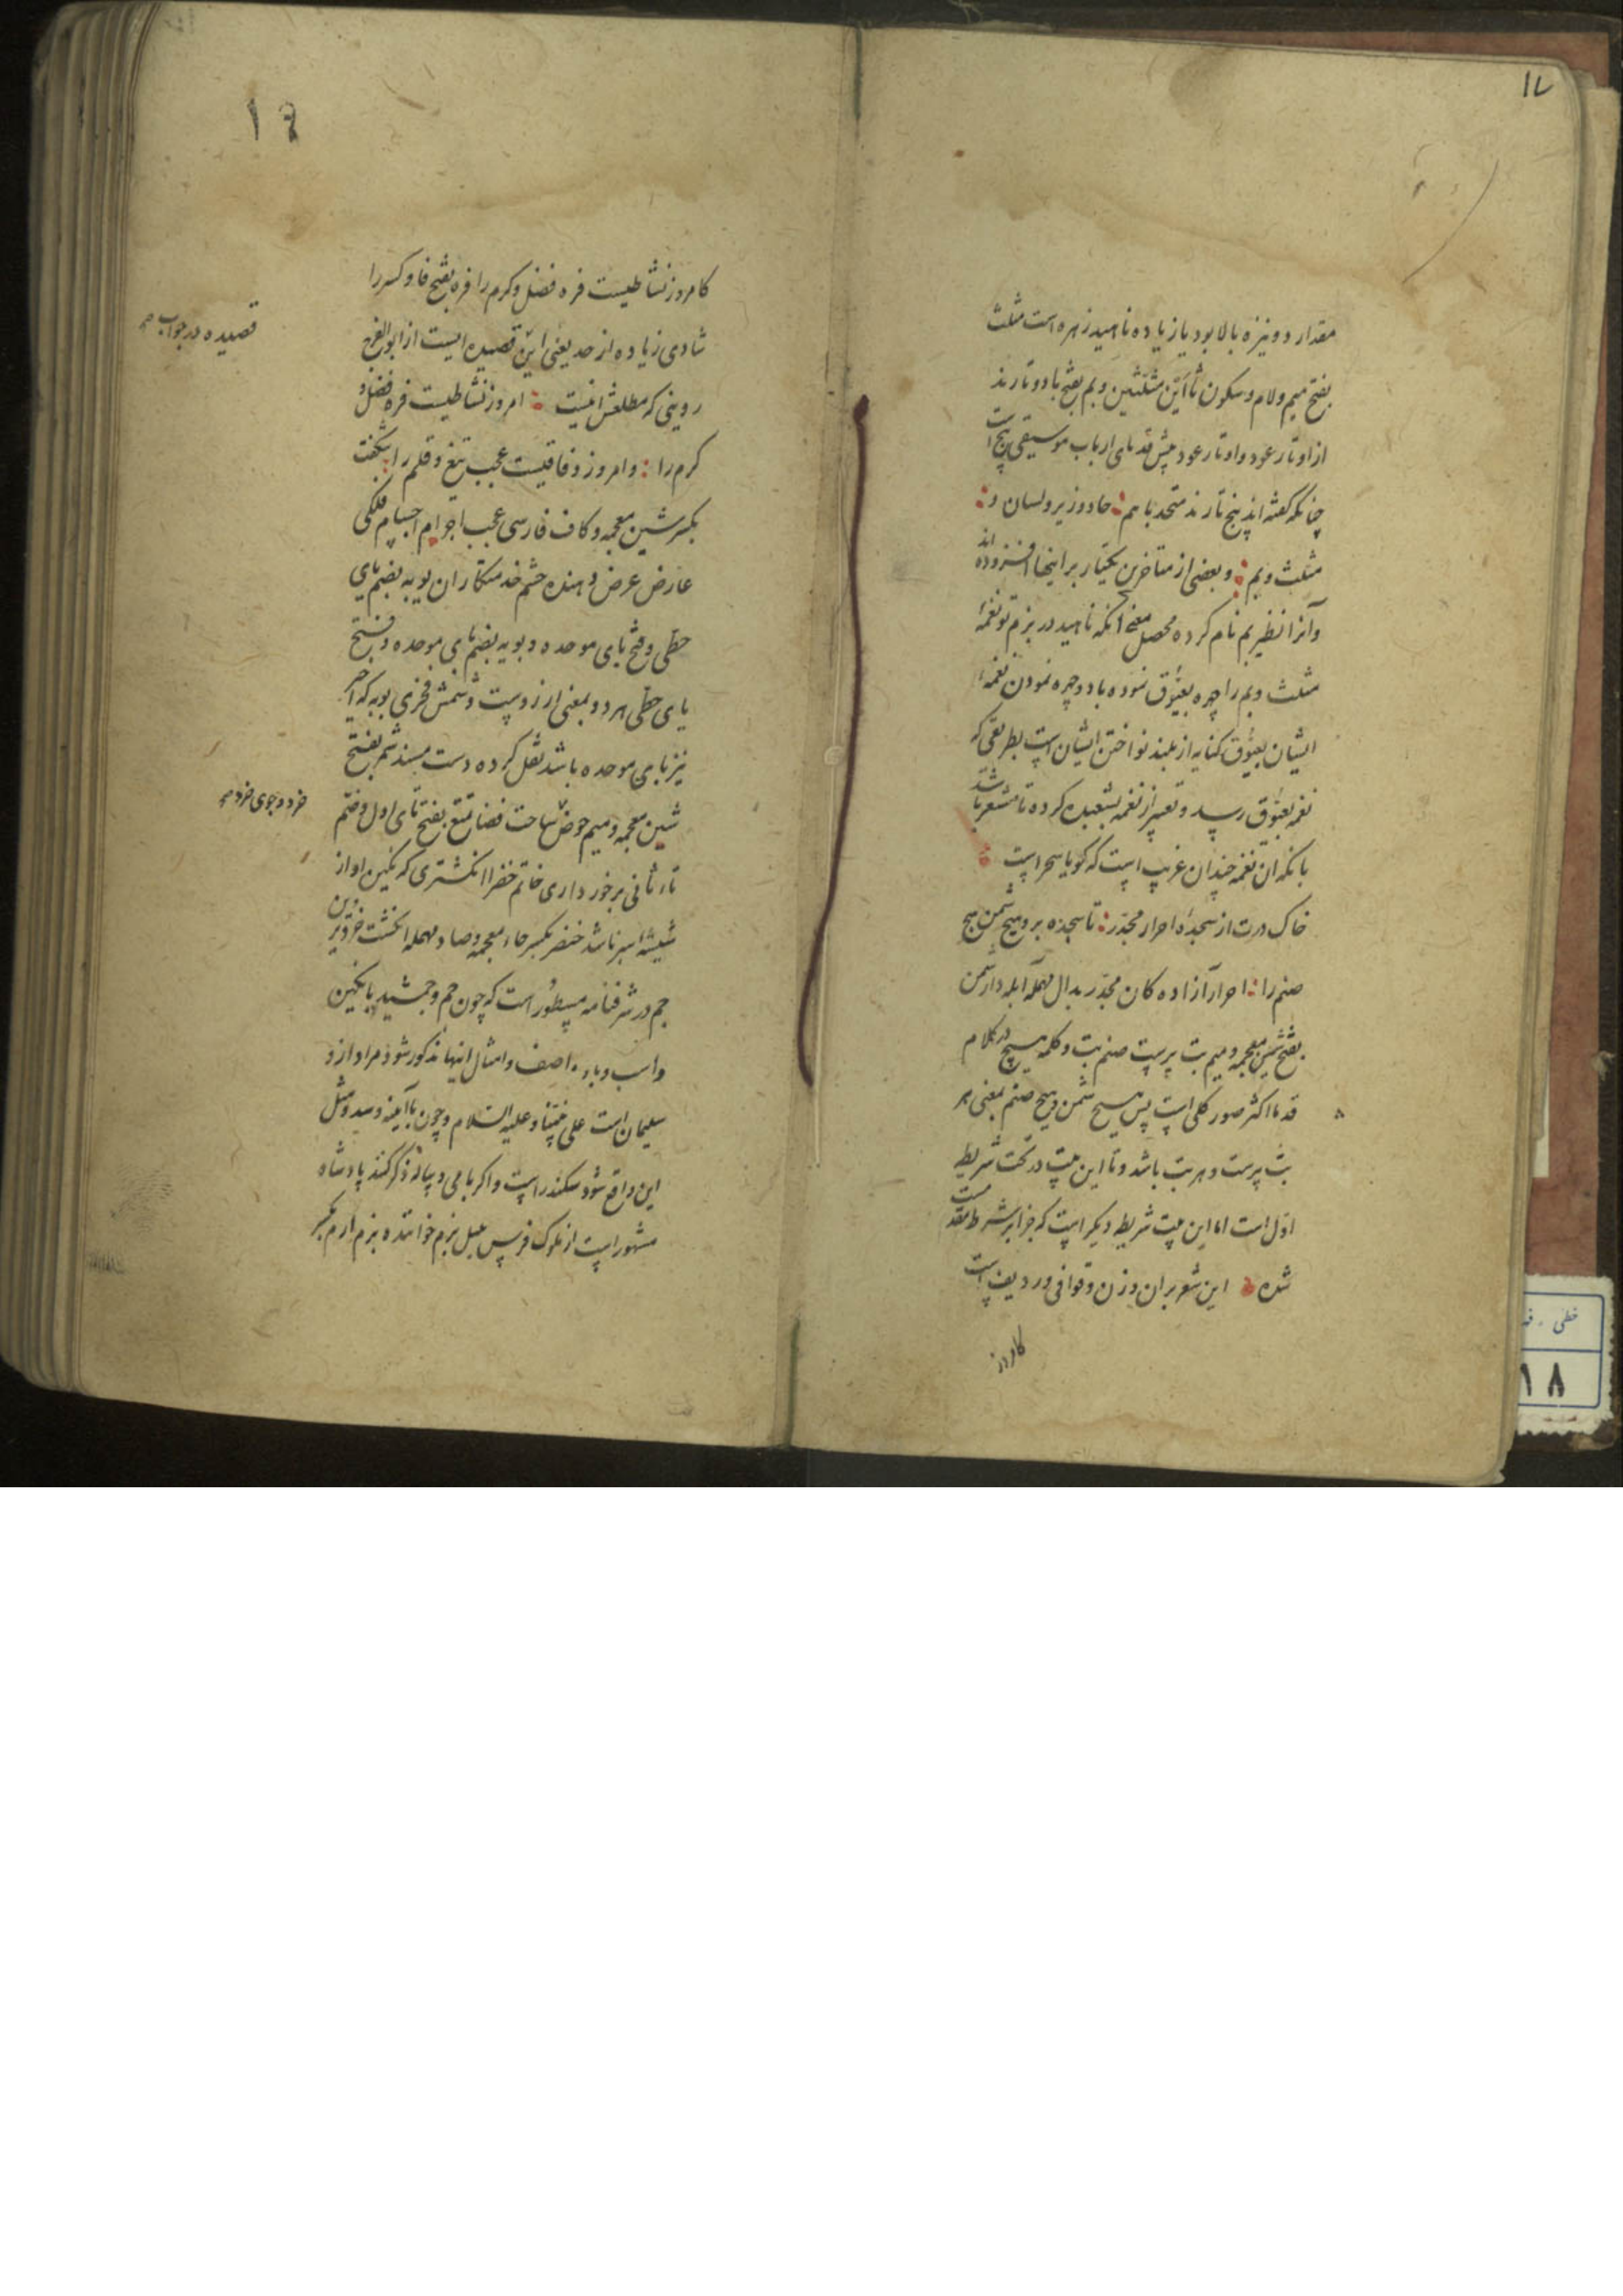 ۱۷
مقدار دو نیزه بالا بود یا زیاده ناهید زهره است مثلث
بفتح میم ولام وسکون ثاأین مثلثتین و بم بفتح با دو تارند
از اوتار عود و اوتار عود پیش قدمای ارباب موسیقی پنج است
چنانکه گفته اند پنج تارند متحد با هم : حاد و زیر و لسان و :
مثلث و بم : و بعضی از متاخرین یکتار بر اینها افزوده اند
و آنرا نظیر بم نام کرده محصل معنی آنکه ناهید در بزم تو نغمهٔ
مثلث و بم را چهره بعیوق نموده باد و چهره نمودن نغمهٔ
ایشان بعیوق کنایه از بلند نواختن ایشان است بطریقی که
نغمه بعیوق رسد و تعبیر از نغمه بشعبده کرده تا مشعر باشد
بانکه ان نغمه چندان غریب است که گویا سحر است
خاک درت از سجدهٔ احرار مجدّر : تا سجده برد هیچ شمن هیچ
صنم را : احرار آزاده کان مجدّر بدال مهمله آبله دار شمن
بفتح شین معجمه و میم بت پرست صنم بت و کلمه هیچ در کلام
قدما اکثر صور کلی است پس هیچ شمن و هیچ صنم بمعنی هر
بت پرست و هر بت باشد و تا این بیت در تحت شریطه
اوّل است اما این بیت شریطه دیگر است که جزا بر شرط مقدمست
شده این شعر بران وزن و قوافی و ردیف است
کامروز
۱۸
کامروز نشاطیست فره فضل و کرم را فره بفتح فا و کسر را
شادی زیاده از حد یعنی این قصیده ایست از ابوالفرج
قصیده در جواب
رونی که مطلعش اینست : امروز نشاطیست فره فضل و
کرم را : و امروز وفاقیست عجب تیغ و قلم را : شگفت
بکسر شین معجمه و کاف فارسی عجب اجرام اجسام فلکی
عارض عرض دهنده حشم خدمتکاران یوبه بضم یای
حطی و فتح بای موحده و بویه بضم بای موحده و فتح
یای حطی هر دو بمعنی ارزوست و شمس فخری بوبه که اخر
نیز بای موحده باشد نقل کرده دست مسند شمر بفتح
شین معجمه و میم حوض ساحت فضا تمتع بفتح تای اول و ضم
خرد و جوی خرد
تاء ثانی برخورداری خاتم خضرا انکشتری که نگین او از
شیشهٔ سبز باشد خنصر بکسر خاء معجمه و صاد مهمله انکشت خردترین
جم در شرفنامه مسطور است که چون جم و جمشید با نگین
و اسب و باد و اصف و امثال اینها مذکور شود مراد ازو
سلیمان است علی نبینا و علیه السلام و چون با آیینه و سد و مثل
این واقع شود سکندر است و اکر با می و پیاله ذکر کنند پادشاه
مشهور است از ملوک فرس میل بزم خواننده بزم ارم بکسر
خطی
۱۸